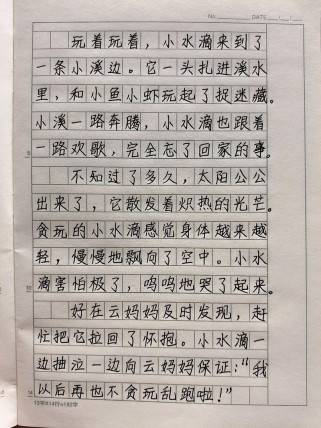 No. DATE
玩着玩着，小水滴来到了
一条小溪边。它一头扎进溪水
里，和小鱼小虾玩起了捉迷藏。
小溪一路奔腾，小水滴也跟着
一路欢歌，完全忘了回家的事。
不知过了多久，太阳公公
出来了，它散发着炽热的光芒。
贪玩的小水滴感觉身体越来越
轻，慢慢地飘向了空中。小水
滴害怕极了，呜呜地哭了起来。
好在云妈妈及时发现，赶
忙把它拉回了怀抱。小水滴一
边抽泣一边向云妈妈保证："我
以后再也不贪玩乱跑啦！"